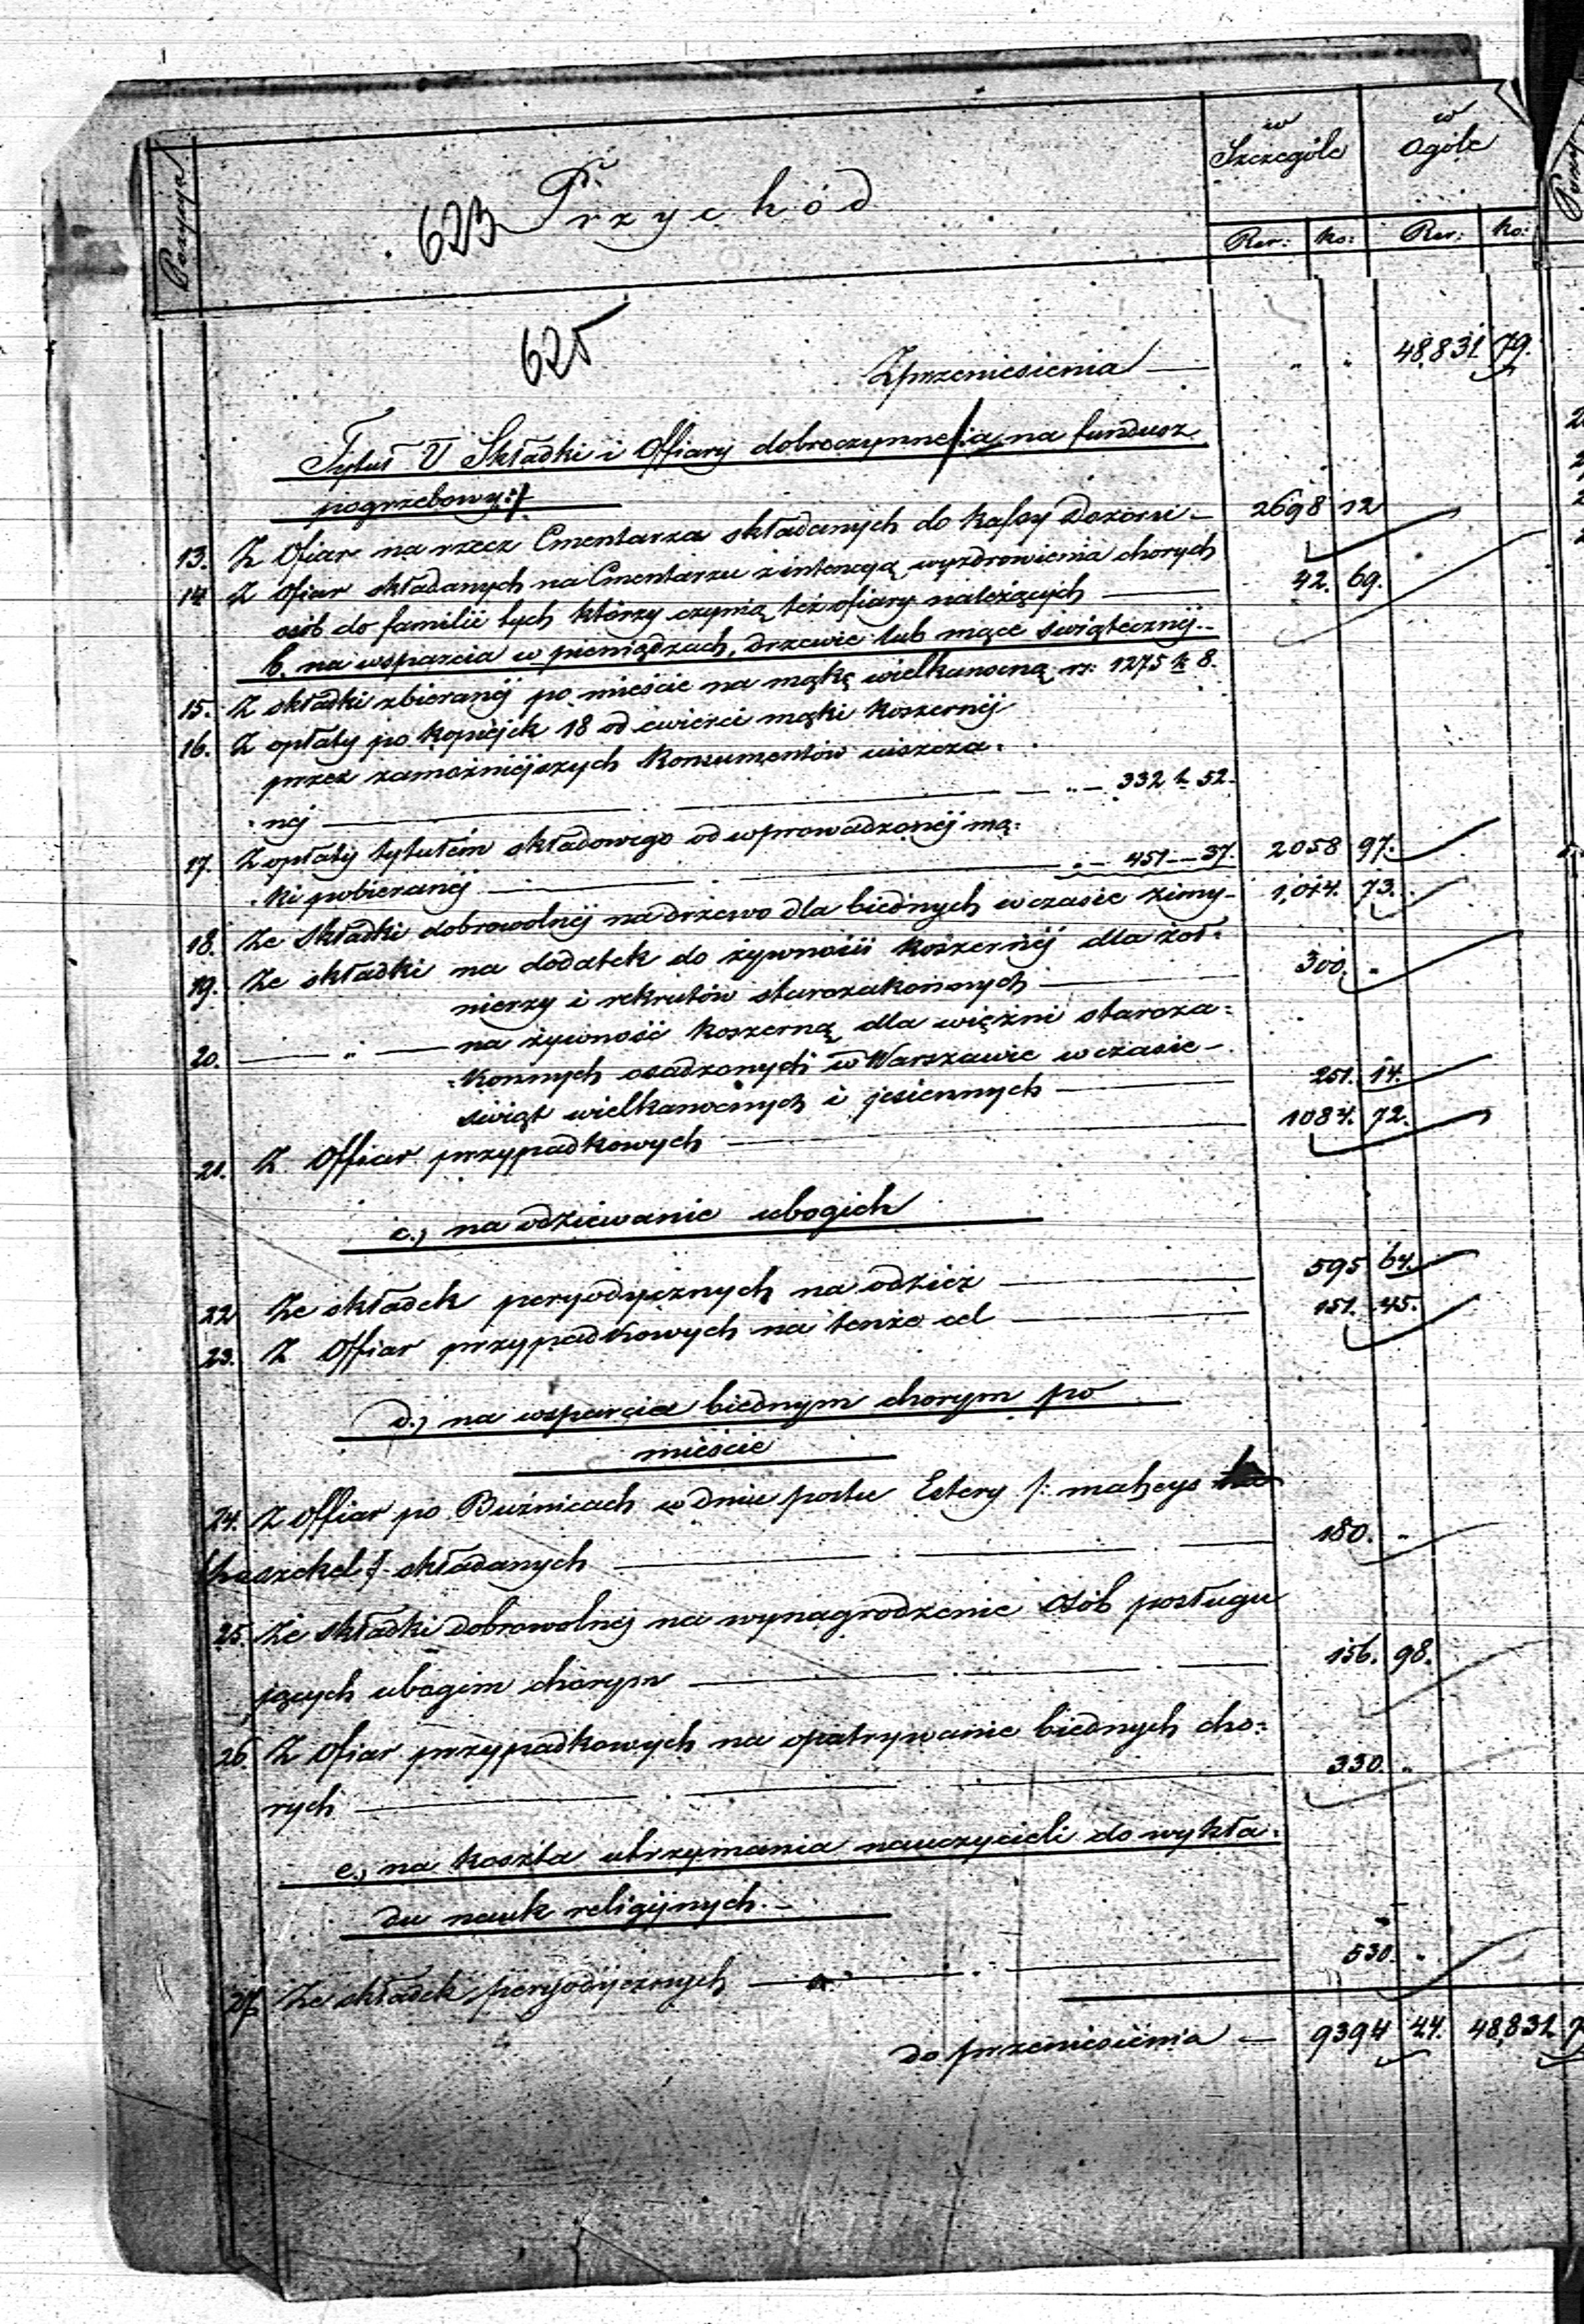 Pozycya
623 Przychód
w Szczególe
w Ogóle
Rsr: ko: Rsr: ko:
625
Z przeniesienia — " " 48,831 79.
Tytuł V Składki i Offiary dobroczynne /: a, na fundusz
pogrzebowy :/
13. Z Ofiar na rzecz Cmentarza składanych do Kassy Dozoru — 2698 12
14 Z Ofiar składanych na Cmentarzu z intencyą wyzdrowienia chorych
osób do familii tych którzy czynią też ofiary należących — 42. 69.
b. na wsparcia w pieniądzach, drzewie lub mące świątecznéj. —
15. Z składki zbieranéj po mieście na mąkę wielkanocną rs: 1275 k 8.
16. Z opłaty po kopiéjek 18 od ćwierci mąki koszernéj
przez zamożniéjszych Konsumentów uiszcza=
=néj — " — 332 k 52.
17. Z opłaty tytułem składowego od wprowadzonéj mą=
=ki pobieranéj — " — 451 — 37. 2058 97.
18. Ze Składki dobrowolnéj na drzewo dla biednych w czasie zimy — 1,014. 73.
19. Ze składki na dodatek do żywności koszernéj dla żoł=
nierzy i rekrutów starozakonnych — 300. "
20. — " — na żywność koszerną dla więźni staroza=
=konnych osadzonych w Warszawie w czasie —
świąt wielkanocnych i jesiennych — 251. 14.
21. Z Offiar przypadkowych — 1084. 72.
c., na odziewanie ubogich
22 Ze składek peryodycznych na odzież — 595 64.
23. Z Offiar przypadkowych na tenże cel — 151. 45.
d., na wsparcia biednym chorym po
mieście
24. Z Offiar po Bużnicach w dniu postu Estery /: maheys
haszekel :/ składanych — 180. "
25. Ze składki dobrowolnej na wynagrodzenie osób posługu
jących ubogim chorym — 156. 98.
26. Z Ofiar przypadkowych na opatrywanie biednych cho=
rych — 330. "
e., na koszta utrzymania nauczycieli do wykła=
du nauk religijnych. —
27. Ze składek peryodycznych — 530. "
do przeniesienia — 9394 44. 48,831 7